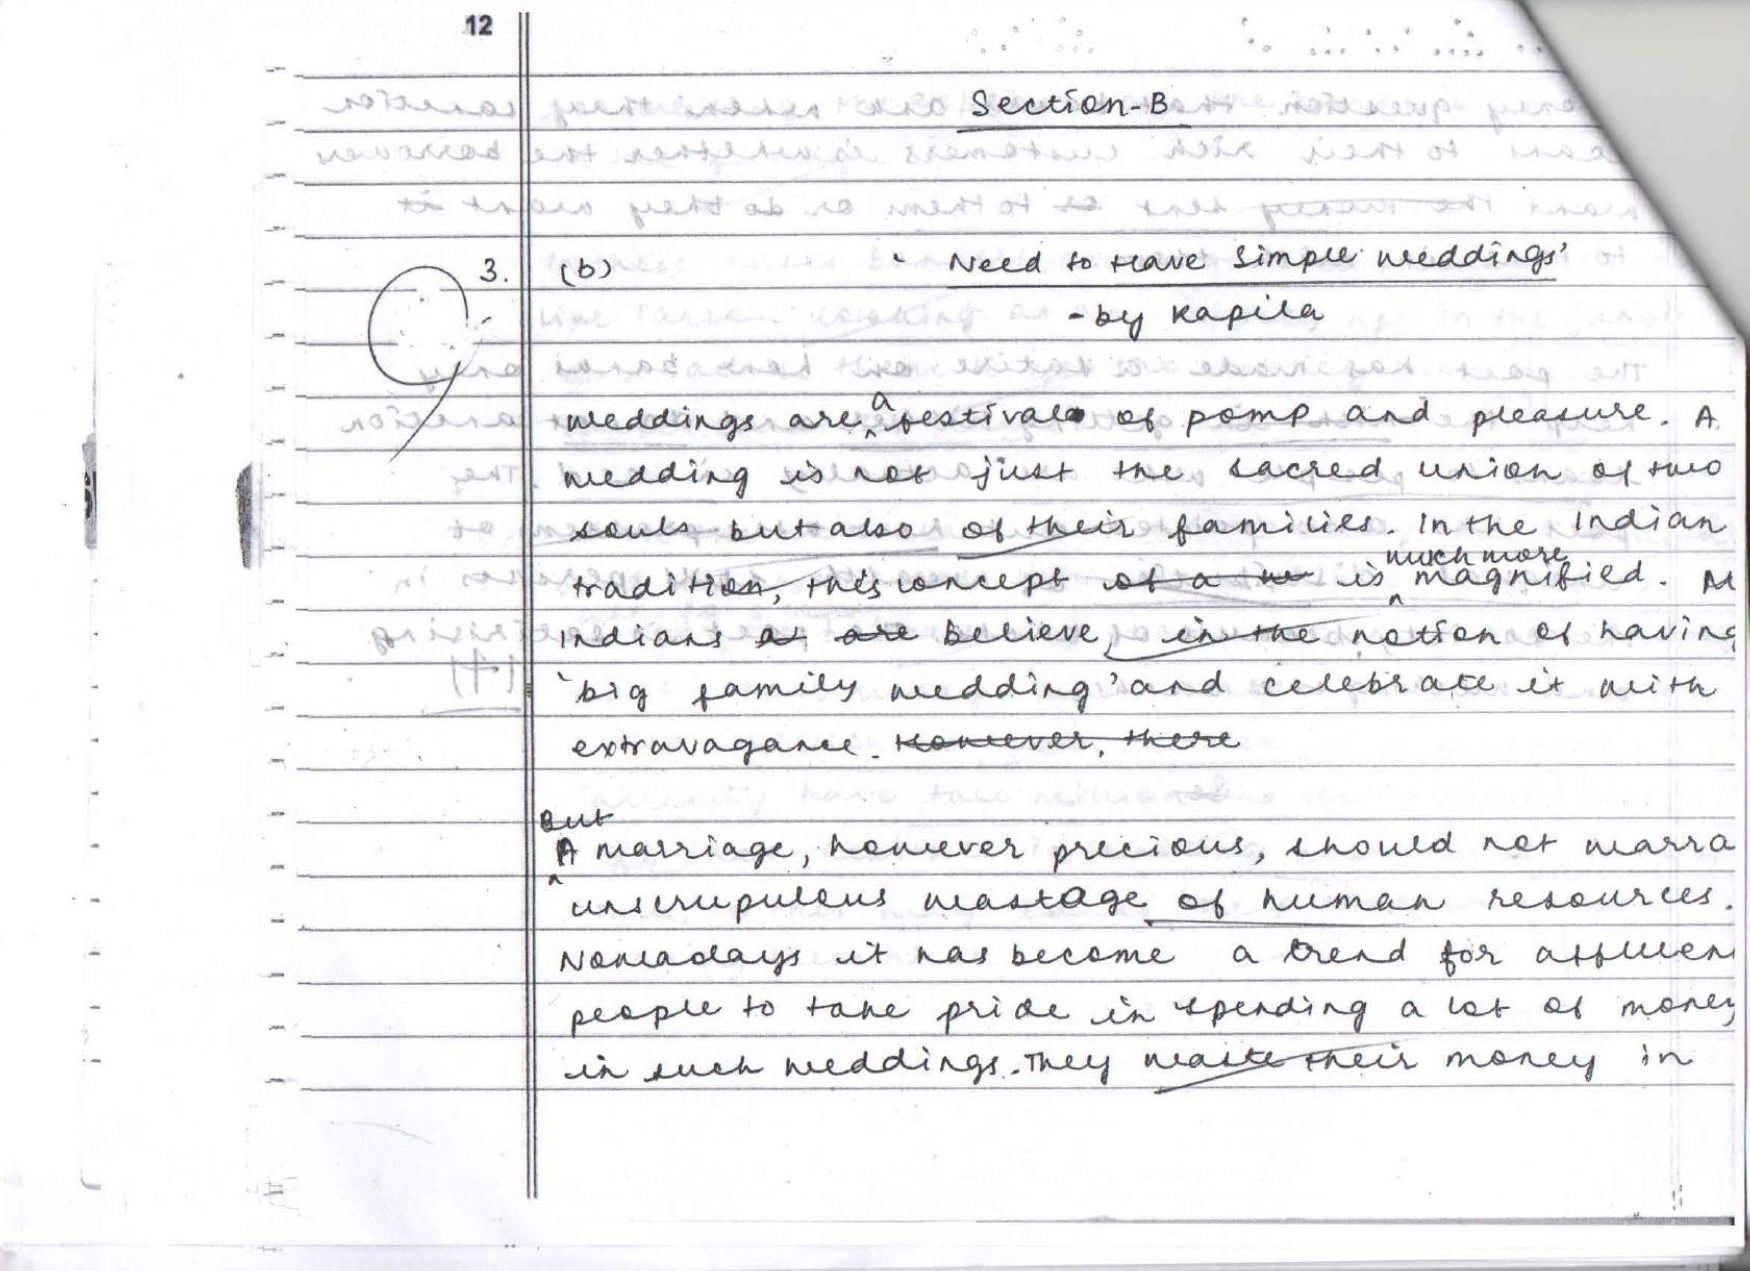 12
Section-B
3. (b) ' Need to Have Simple weddings'
- by Kapila
weddings are a festival of pomp and pleasure. A
wedding is not just the sacred union of two
souls but also of their families. In the Indian
tradition, this concept of a is much more magnified.
Indians at are believe, in the notion of having
'big family wedding' and celebrate it with
extravagance. However, there
But
A marriage, however precious, should not marra
unscrupulous wastage of human resources.
Nowadays it has become a trend for affluen
people to take pride in spending a lot of money
in such weddings. They waste their money in